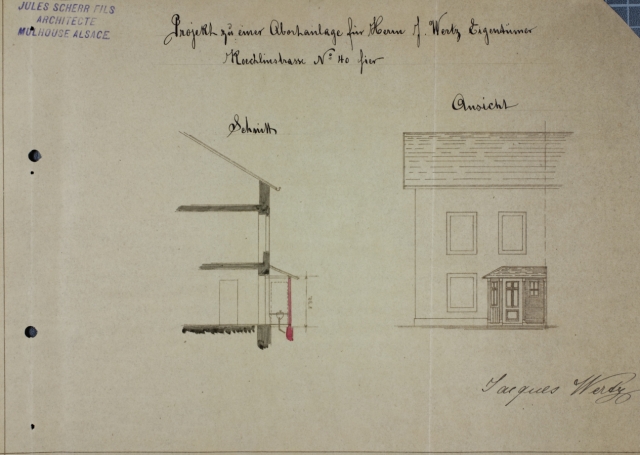 JULES SCHERR FILS
ARCHITECTE
MULHOUSE ALSACE.
Projekt zu einer Abortanlage für Herrn J. Wertz Eigentümer
Koechlinstrasse Nº 40 hier
Schnitt
Ansicht
Jacques Wertz